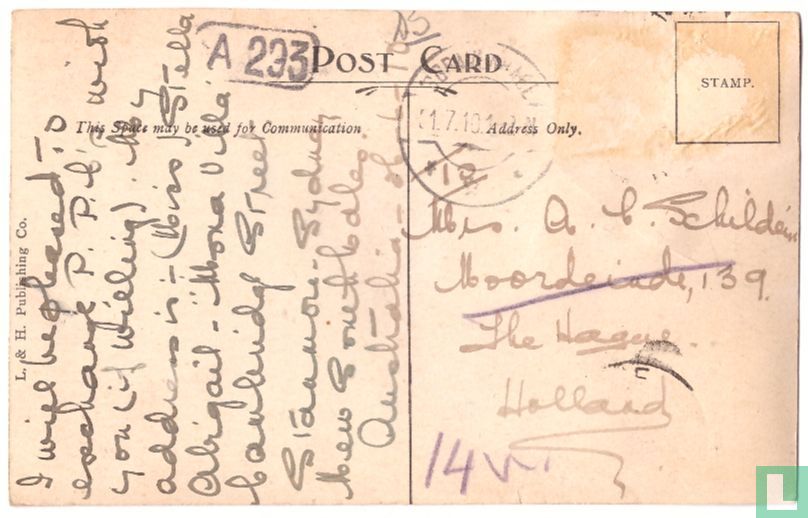 POST CARD
STAMP.
A 293
This Space may be used for Communication
Address Only.
L. & H. Publishing Co.
I will be pleased to
exchange P. P. C.'s with
you (if willing). My
address is:- (Miss) Stella
Abigail - "Mona Villa"
Cambridge Street
Stanmore - Sydney
New South Wales
Australia
Mrs. A. C.
Noordeinde, 139.
The Hague.
Holland